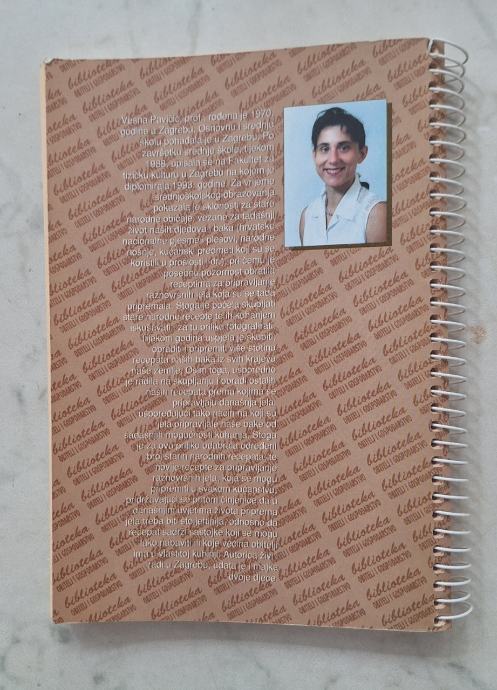 Vesna Pavičić, prof., rođena je 1970.
godine u Zagrebu. Osnovnu i srednju
školu pohađala je u Zagrebu. Po
završetku srednje škole, tijekom
1988. upisala se na Fakultet za
fizičku kulturu u Zagrebu na kojem je
diplomirala 1993. godine. Za vrijeme
srednjoškolskog obrazovanja
pokazala je sklonosti za stare
narodne običaje, vezane za tadašnji
život naših djedova i baka (hrvatske
nacionalne pjesme i plesovi, narodne
nošnje, kućanski predmeti koji su se
koristili u prošlosti i dr.), pri čemu je
posebnu pozornost obratila
receptima za pripravljanje
raznovrsnih jela koja su se tada
pripremala. Stoga je počela skupljati
stare narodne recepte te ih kuhanjem
iskušavati, za tu priliku fotografirati.
Tijekom godina uspjela je skupiti,
obraditi i pripremiti više stotinu
recepata naših baka iz svih krajeva
naše zemlje. Osim toga, usporedno
je radila na skupljanju i obradi ostalih
naših recepata prema kojima se
pripravljaju današnja jela,
uspoređujući tako način na koji su
jela pripravljale naše bake od
sadašnjih mogućnosti kuhanja. Stoga
je za ovu priliku odabrala određeni
broj starih narodnih recepata, te
novije recepte za pripravljanje
raznovrsnih jela, koja se mogu
pripremiti u svakom kućanstvu,
pridržavajući se pritom činjenice da u
današnjim uvjetima života priprema
jela treba biti što jeftinija, odnosno da
recepat sadrži sastojke koji se mogu
lako nabaviti ili koje većina obitelji
ima u vlastitoj kuhinji. Autorica živi i
radi u Zagrebu, udata je i majka
dvoje djece.
biblioteka
OBITELJ I GOSPODARSTVO